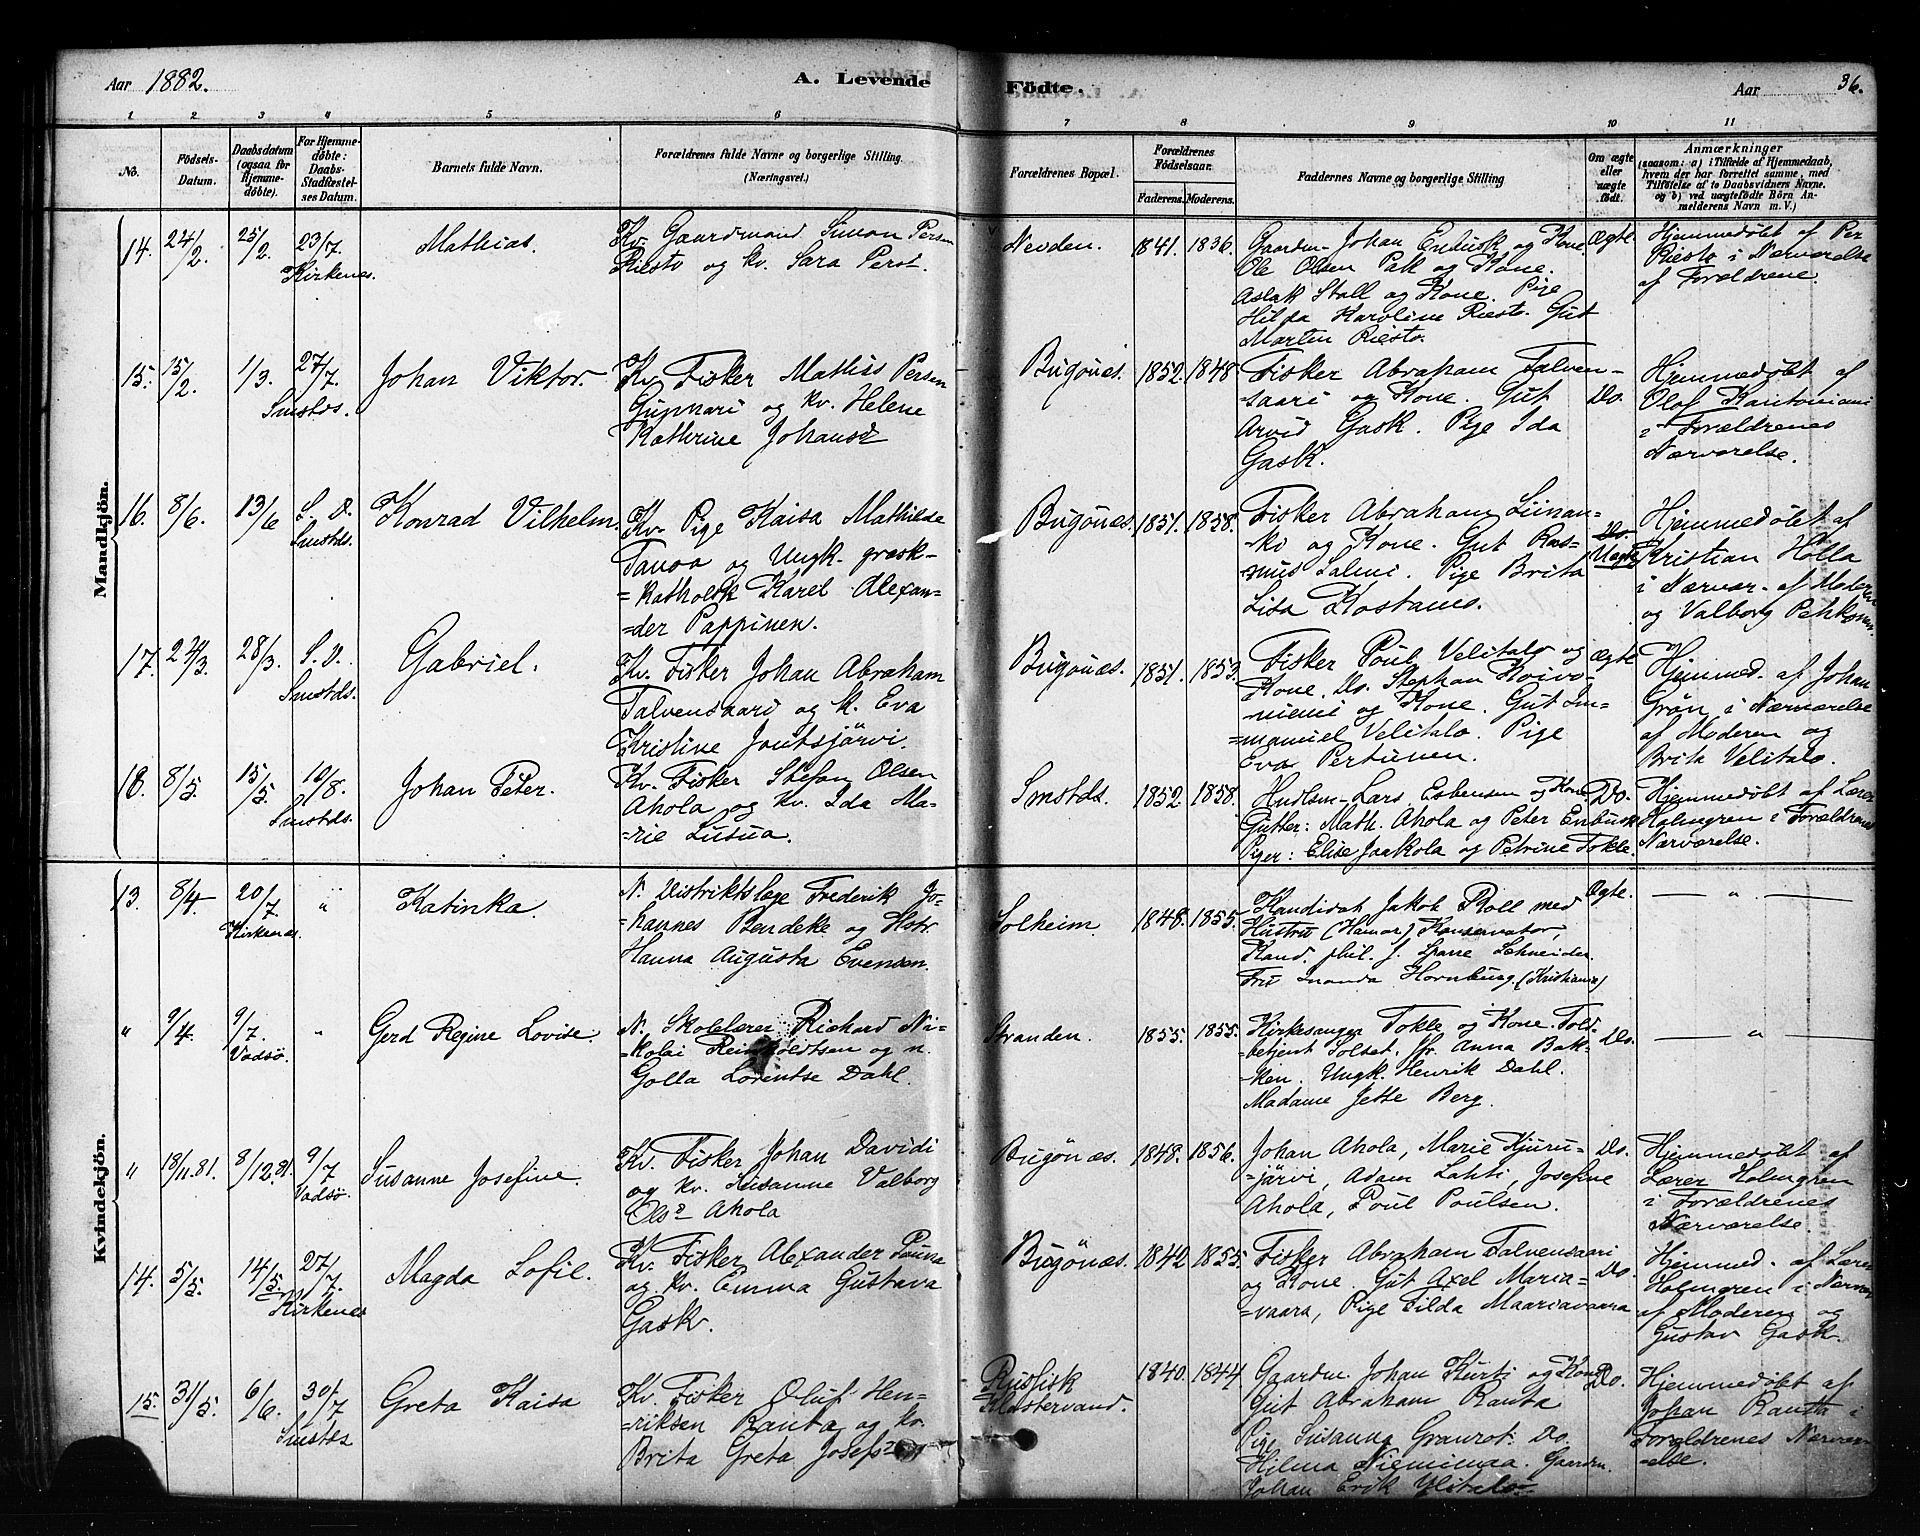 Aar 1882.
A. Levende
Födte.
Aar 36.
1 2 3 4 5 6 7 8 9 10 11
No.
Födsels-Datum.
Daabsdatum (ogsaa for Hjemmedöbte).
For Hjemmedöbte: Daabs-Stadfæstelses Datum.
Barnets fulde Navn.
Forældrenes fulde Navne og borgerlige Stilling (Næringsvei.)
Forældrenes Bopæl.
Forældrenes Födselsaar.
Faderens. Moderens.
Faddernes Navne og borgerlige Stilling
Om ægte eller uægte födt.
Anmærkninger
(saasom: a) i Tilfælde af Hjemmedaab, hvem der har forrettet samme, med Tilföielse af to Daabsvidners Navne. og b) ved uægtefödte Börn Anmelderens Navn m. V.)
Mandkjön.
14. 24/2 25/2 23/7 Kirkenes. Mathias.
Kv. Gaardmand Simon Persen
Riesto og kv. Sara Persd.
Neiden. 1841. 1836.
Gaardm. Johan Enbusk og Kone.
Ole Olsen Pak og Kone.
Aslak Stall og Kone. Pige
Hilda Karoline Riesto. Gut
Marten Riesto.
Ægte.
Hjemmedöbt af Per
Riesto i Nærværelse
af Forældrene.
15. 15/2 1/3. 27/7. Smstds. Johan Viktor.
Kv. Fisker Mathis Persen
og kv. Helene
Kathrine Johansd
Bugönes. 1852. 1848
Fisker Abraham Talven-
-saari og Kone. Gut
Arvid Gask. Pige Ida
Gask.
Do.
Hjemmedöbt af
Olof Kantoniemi
i Forældrenes
Nærværelse.
16. 8/6. 13/6 S. D. Smstds. Konrad Vilhelm.
Kv. Pige Kaisa Mathilde
Tanoa og Ungk. græsk-
=katholsk Karel Alexan-
=der Pappinen.
Bugönes. 1851. 1858.
Fisker Abraham Liinan-
-ki og Kone. Gut Ras-
mus Salmi. Pige Brita
Lisa Kostamo.
Do. Uægte
Hjemmedöbt af
Kristian Holla
i Nærvær. af Moderen
og Valborg Pekkonen.
17. 24/3 28/3. S. D. Smstds. Gabriel.
Kv. Fisker Johan Abraham
Talvensaari og k. Eva
Kristine Jontsjärvi.
Bugönes. 1851. 1853.
Fisker Poul Velitalo og
Kone. Do. Stephan Koivo-
niemi og Kone. Gut Im-
=manuel Velitalo. Pige
Eva Pertunen.
Ægte
Hjemmed. af Johan
Grön i Nærværelse
af Moderen og
Brita Velitalo.
18. 8/5. 15/5. 10/8. Smstds. Johan Peter.
Kv. Fisker Stefan Olsen
Ahola og kv. Ida Ma-
=rie Lusua.
Smstds. 1852. 1858.
Husm. Lars Esbensen og Kone
Gutter: Math. Ahola og Peter Enbusk
Piger: Elise Jaakola og Petrine Tokle.
Do.
Hjemmedöbt af Lærer
Holmgren i Forældrenes
Nærværelse.
Kvindekjön.
13. 8/4 20/7. Kirkenes. " Katinka.
N. Distriktslæge Frederik Jo-
=hannes Bendeke og Hstr.
Hanna Augusta Evensen.
Solheim. 1848. 1855.
Kandidat Jakob Roll med
Hustru (Hamar) Konservator,
Kand. phil. J. Sparre Schneider.
Fru Hornburg. (Kristiania)
Ægte.
— " —
" 9/4. 9/7. Vadsö. " Gerd Regine Lovise.
N. Skolelærer Richard Ni-
=kolai Reinholdtsen og n.
Golla Lorentse Dahl.
Stranden. 1855. 1855.
Kirkesanger Tokle og Kone. Told-
=betjent Solset. Jfr. Anna Bak-
-ken. Ungk. Henrik Dahl.
Madame Jette Berg.
Do.
— " —
" 18/11.81. 8/12.81. 9/7 Vadsö. Susanne Josefine.
Kv. Fisker Johan Davidi
og kv. Susanne Valborg
Olsd Ahola
Bugönes. 1848. 1856.
Johan Ahola, Marie Kjuru-
-järvi, Adam Lahti, Josefine
Ahola, Poul Poulsen.
Do.
Hjemmedöbt af
Lærer Holmgren
i Forældrenes
Nærværelse
14. 5/5. 14/5 27/7. Kirkenes Magda Sofie.
Kv. Fisker Alexander Pauna
og kv. Emma Gustava
Gask.
Bugönes. 1842 1855.
Fisker Abraham Talvensaari
og Kone. Gut Axel Maria-
=vaara, Pige Tilda Maariavaara
Do.
Hjemmed. af Lærer
Holmgren i Nærvær
af Moderen og
Gustav Gask.
15. 31/5. 6/6. 30/7 Smstds Greta Kaisa
Kv. Fisker Oluf Hen-
=riksen Ranta og kv.
Brita Greta Josefsd
Russisk
Klostervand. 1840. 1844
Gaardm. Johan Kurti og Kone
Gut Abraham Ranta
Pige Susanna Granrot. Do.
Hilma Nieminaa. Gaardm.
Johan Erik Ylitalo
Do.
Hjemmedöbt af
Johan Ranta i
Forældrenes Nærvær-
-else.